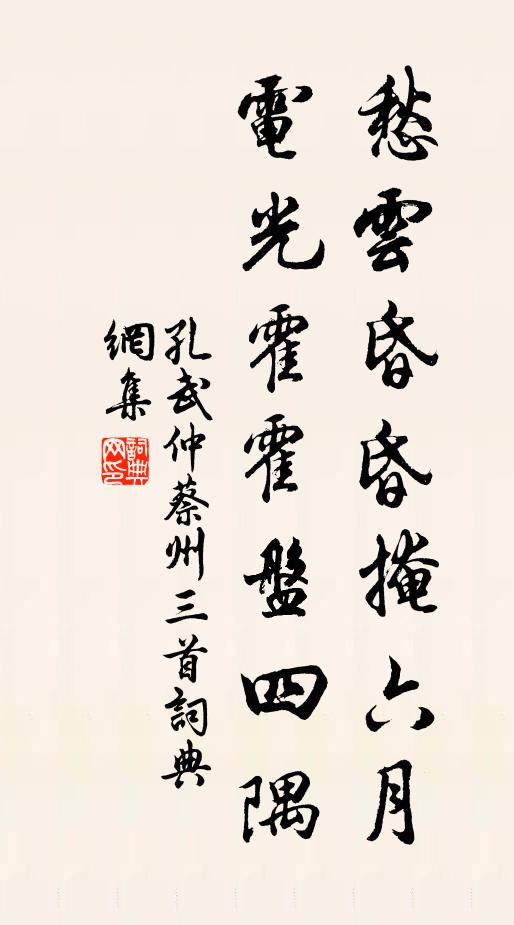 愁雲昏昏掩六月
電光霍霍盤四隅
孔武仲蔡州三首詞典
網集
詞典
网印